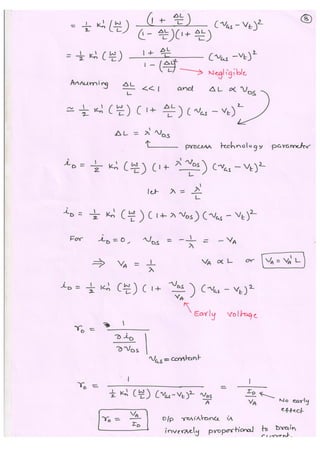 ⑧
= 1/2 Kn' (W/L) (1 + ΔL/L) / ((1 - ΔL/L)(1 + ΔL/L)) (VGS - Vt)²
= 1/2 Kn' (W/L) (1 + ΔL/L) / (1 - (ΔL/L)²) (VGS - Vt)²
→ Negligible
Assuming ΔL/L << 1 and ΔL ∝ VDS
≃ 1/2 Kn' (W/L) (1 + ΔL/L) (VGS - Vt)²
ΔL = λ' VDS
process technology parameter
iD = 1/2 Kn' (W/L) (1 + λ' VDS/L) (VGS - Vt)²
let λ = λ'/L
iD = 1/2 Kn' (W/L) (1 + λ VDS) (VGS - Vt)²
For iD = 0, VDS = - 1/λ = - VA
⇒ VA = 1/λ VA ∝ L or VA = VA' L
iD = 1/2 Kn' (W/L) (1 + VDS/VA) (VGS - Vt)²
Early voltage
ro = 1 / (∂iD/∂VDS) | VGS = constant
ro = 1 / (1/2 Kn' (W/L) (VGS - Vt)² VDS/VA) = 1 / (ID/VA)
No early
effect.
ro = VA/ID o/p resistance is
inversely proportional to Drain
current.